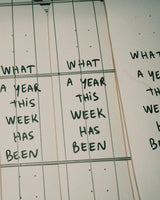 WHAT
A YEAR
THIS
WEEK
HAS
BEEN
WHAT
A YEAR
THIS
WEEK
HAS
BEEN
WHAT